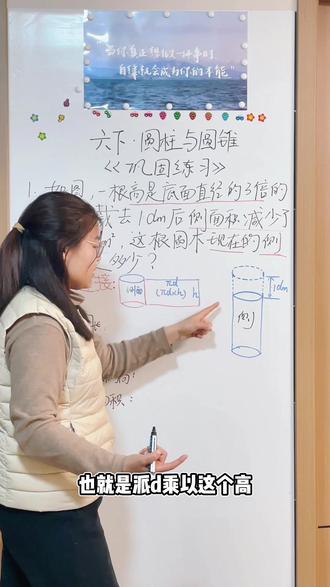 "当你真正想做一件事时，
自信就会成为你的本能"
六下·圆柱与圆锥
《巩固练习》
1. 如图，一根高是底面直径的3倍的
截去1dm后侧面积减少了
m²，这根圆木现在的侧
多少？
侧面
πd
(πd×h)
h
1dm
侧
积：
也就是派d乘以这个高